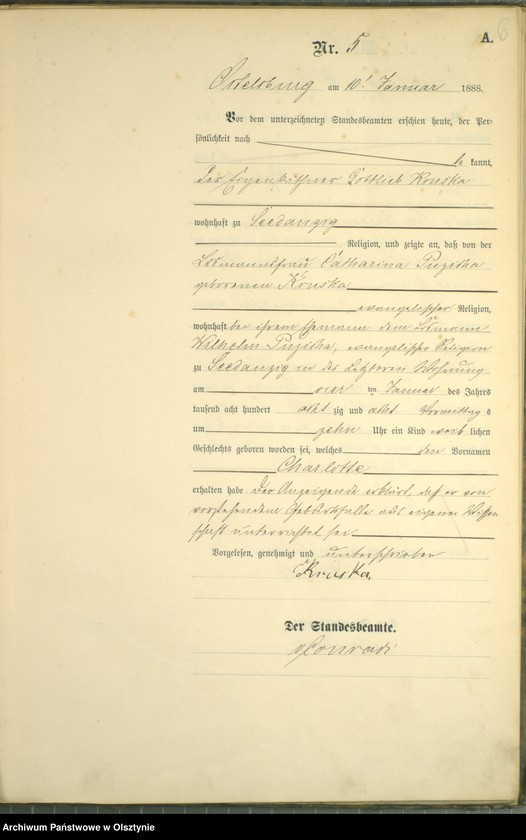 A. 6
Nr. 5
Ortelsburg am 10t Januar 1888.
Vor dem unterzeichneten Standesbeamten erschien heute, der Per-
sönlichkeit nach
be kannt,
der Eigenkäthner Gottlieb Kruska
wohnhaft zu Seedanzig
Religion, und zeigte an, daß von der
Losmannsfrau Catharina Puzicha
geborenen Kruska
evangelischer Religion,
wohnhaft bei ihrem Ehemann dem Losmann
Wilhelm Puzicha, evangelischer Religion
zu Seedanzig in des Letzteren Wohnung
am vier ten Januar des Jahres
tausend acht hundert acht zig und acht Vormittag s
um zehn Uhr ein Kind weib lichen
Geschlechts geboren worden sei, welches den Vornamen
Charlotte
erhalten habe. Der Anzeigende erklärt, daß er von
vorstehendem Geburtsfalle aus eigener Wissen
schaft unterrichtet sei
Vorgelesen, genehmigt und unterschrieben
Kruska.
Der Standesbeamte.
Conradi
Archiwum Państwowe w Olsztynie